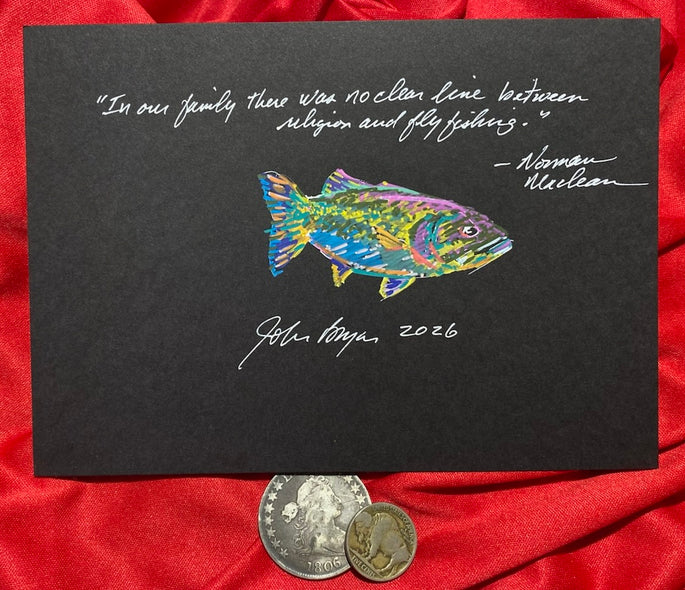 "In our family there was no clear line between
religion and fly fishing."
— Norman
Maclean
John Bryan 2026
1806